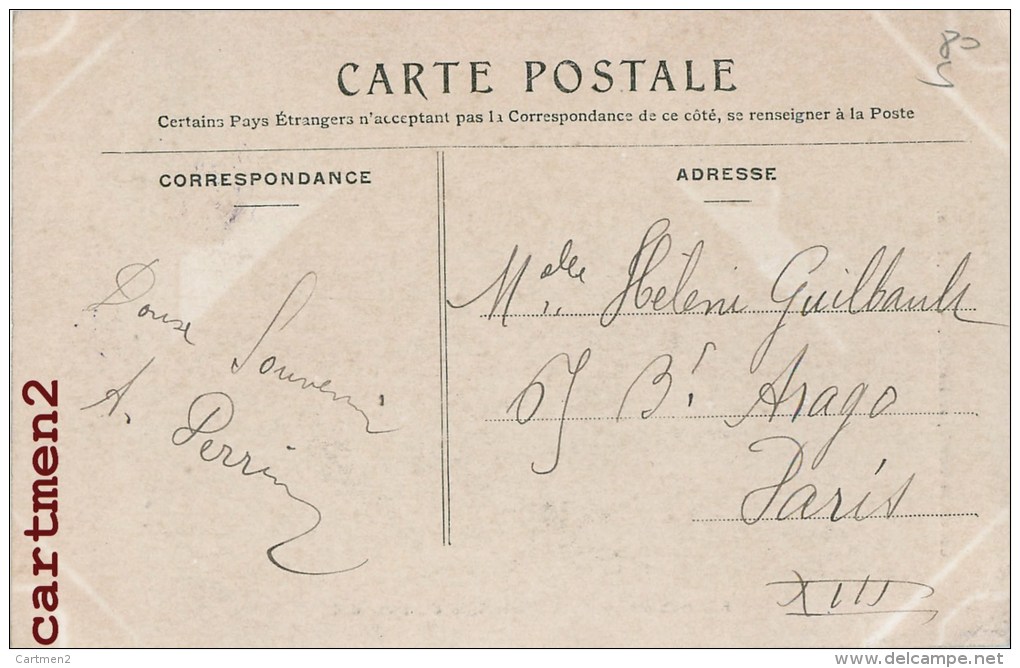 CARTE POSTALE
Certains Pays Étrangers n'acceptant pas la Correspondance de ce côté, se renseigner à la Poste
CORRESPONDANCE
ADRESSE
Souvenir
A. Perrin
Mdlle Hélène Guilbault
Bd Arago
Paris
XIII
cartmen2
Cartmen2
www.delcampe.net